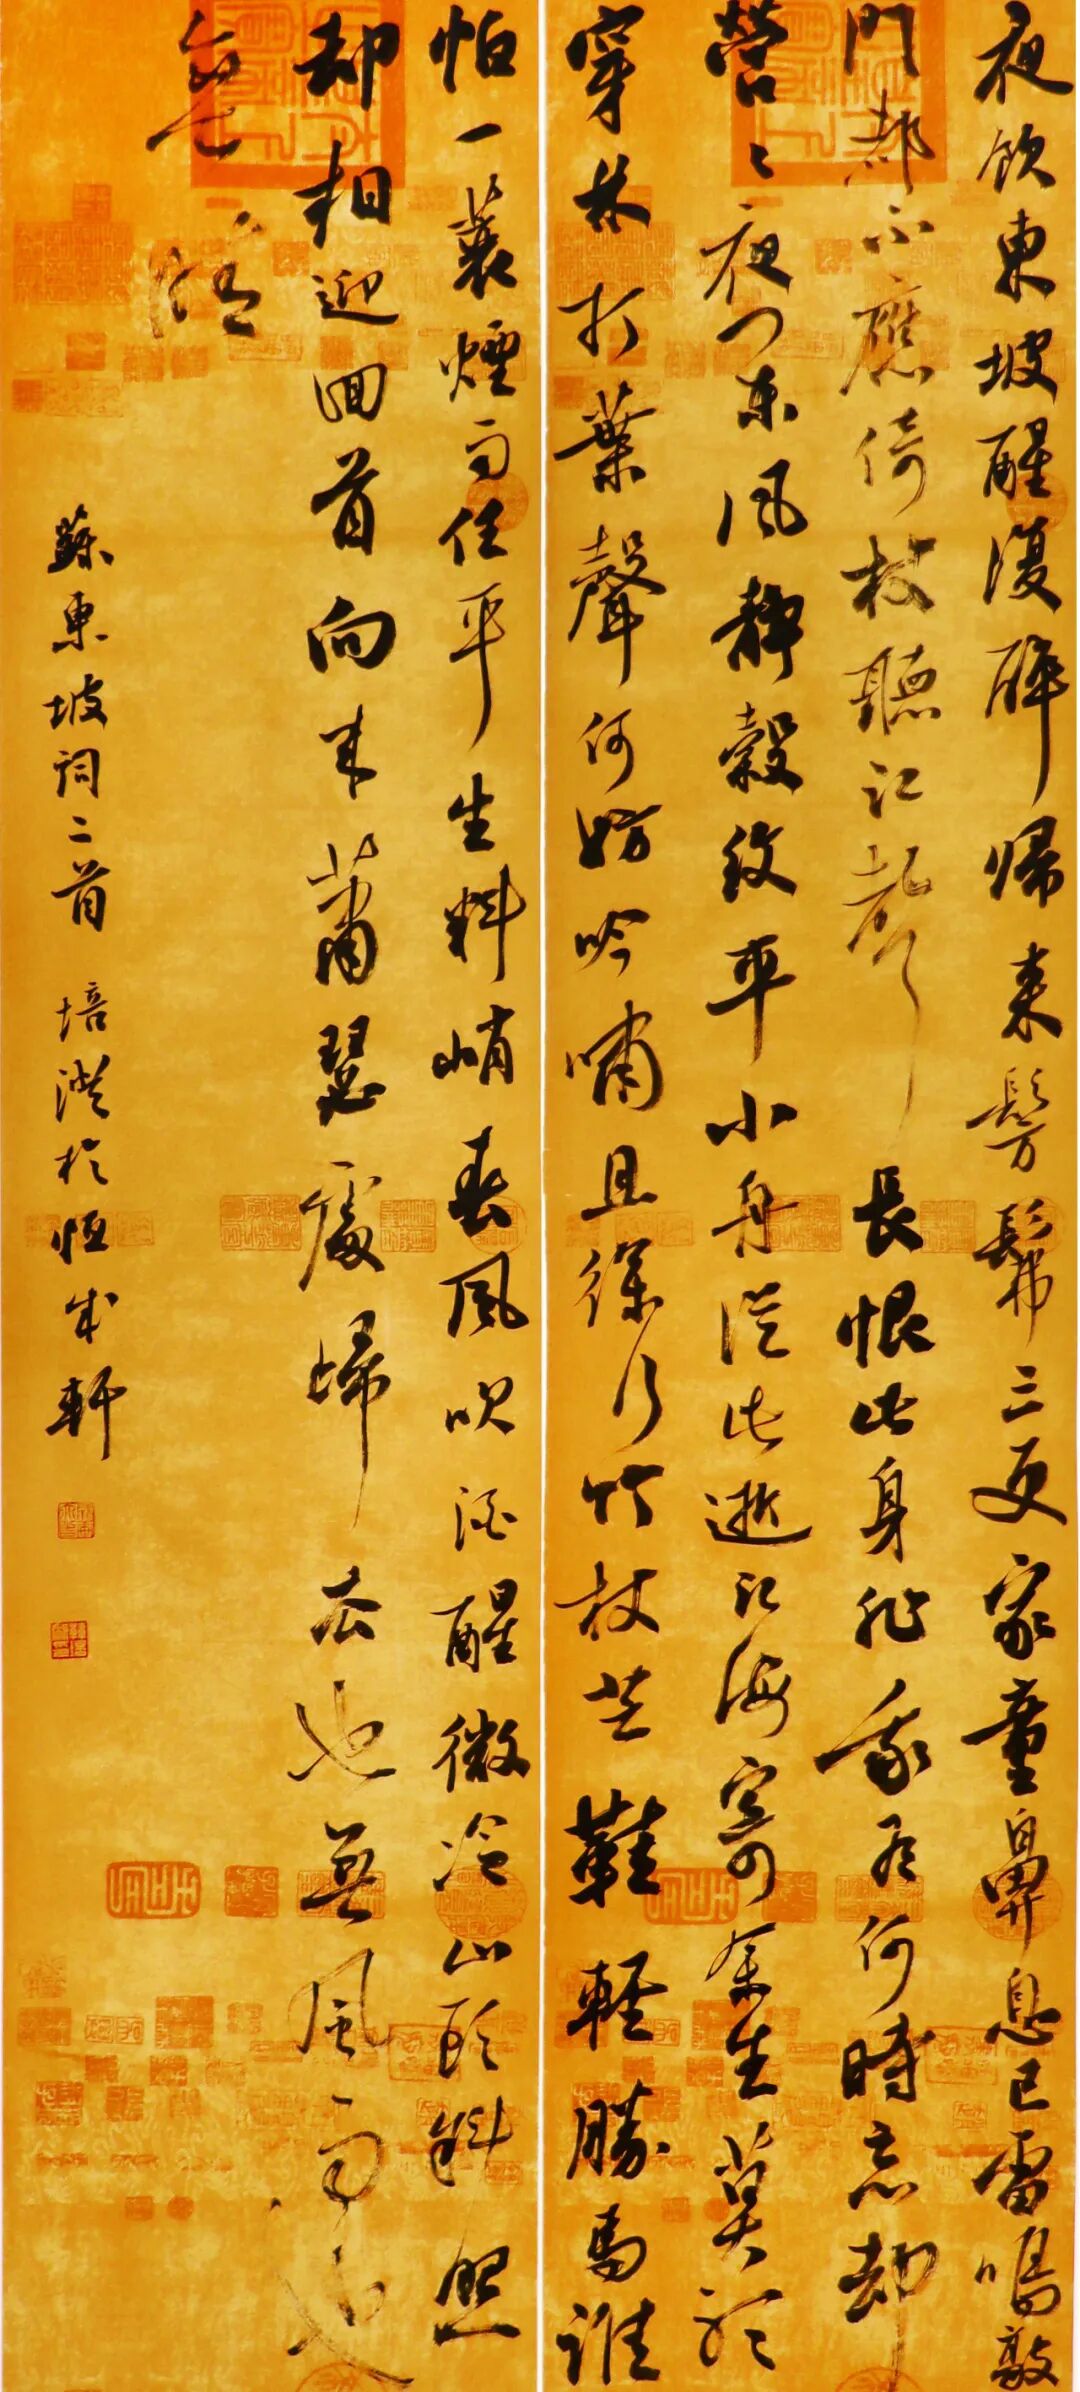 夜飲東坡醒復醉歸来髣髴三更家童鼻息已雷鳴敲
門都不應倚杖聽江聲長恨此身非我有何時忘却
營〻夜闌風靜縠紋平小舟從此逝江海寄余生莫聽
穿林打葉聲何妨吟嘯且徐行竹杖芒鞋輕勝馬誰
怕一蓑煙雨任平生料峭春風吹酒醒微冷山頭斜照
却相迎回首向来蕭瑟處歸去也無風雨也
無晴
蘇東坡詞二首 培於恒成軒